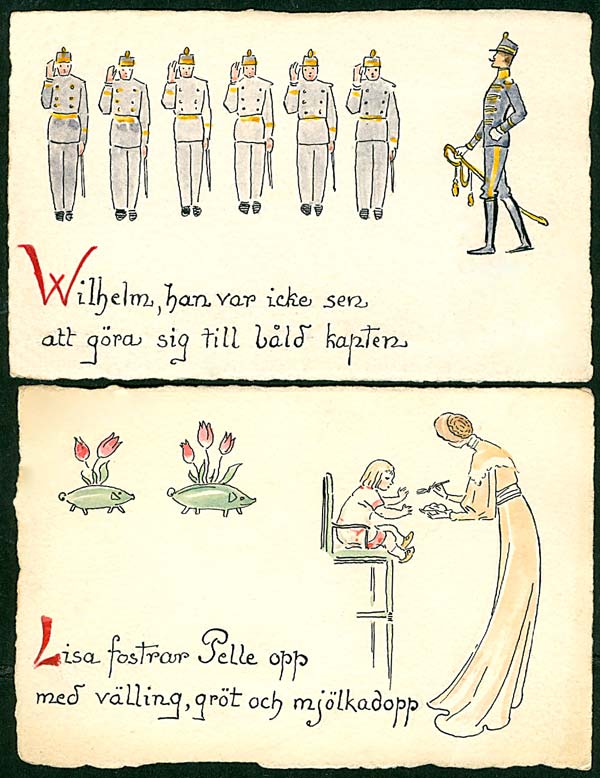 Wilhelm, han var icke sen
att göra sig till båld kapten
Lisa fostrar Pelle opp
med välling, gröt och mjölkadopp